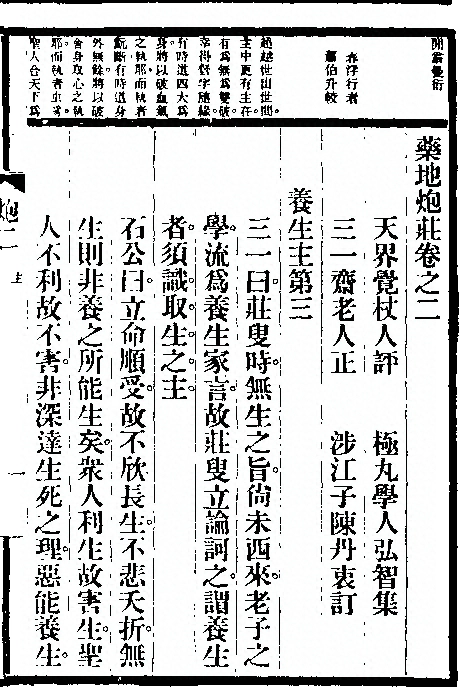 閒翁曼衍
春浮行者
蕭伯升較
藥地炮莊卷之二
天界覺杖人評　極丸學人弘智集
三一齋老人正　涉江子陳丹衷訂
養生主第三
三一曰莊叟時無生之旨尙未西來老子之
學流爲養生家言故莊叟立論訶之謂養生
者須識取生之主
石公曰立命順受故不欣長生不悲夭折無
生則非養之所能生矣衆人利生故害生聖
人不利故不害非深達生死之理惡能養生
超越世出世間
主中更有主在
有爲無爲雙破
幸得督字隨緣
有時道四大爲
身將以破血氣
之執耶而執者
斷有時道身
外無餘將以破
舍身取心之執
耶而執者
聖人合天下爲
炮二
主
一